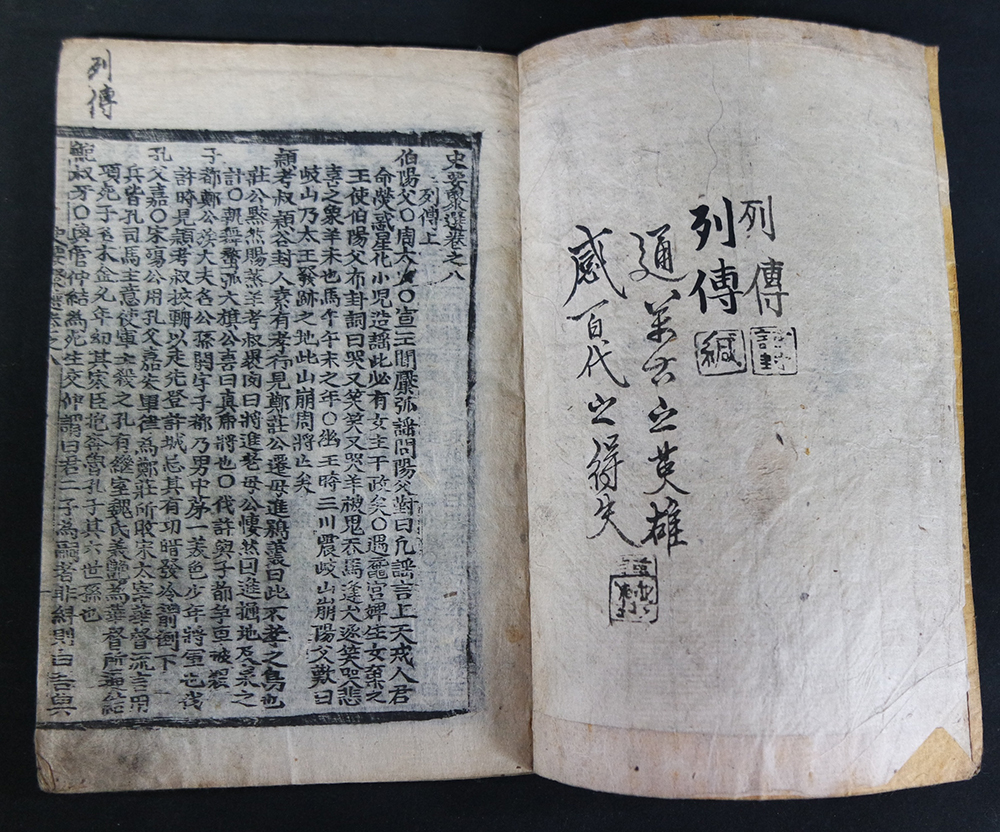 列傳
謹封
列傳
緘
通萬古之英雄
感百代之得失
列傳
史要聚選卷之八
列傳上
伯陽父〇周太史〇宣王聞檿弧謠問陽父對曰凡謠言上天戒人君
命熒惑星化小児造謠此必有女主干政矣〇遇龍宮婢生女棄之
王使伯陽父布卦詞曰哭又笑笑又哭羊被鬼吞馬逢犬逐笑哭悲
喜之象羊未也馬午午未之年〇幽王時三川震岐山崩陽父歎曰
岐山乃太王發跡之地此山崩周將亡矣
潁考叔潁谷封人素有孝行見鄭莊公遷母進鴞議曰此不孝之鳥也
莊公黙然賜蒸羊考叔褁肉曰將進老母公悽然曰進掘地及泉之
計〇朝舞螯弧大旗公喜曰真將也〇代許與子都爭車
子都鄭公族大夫名公孫閼字子都乃男中第一美色少年將軍也伐
許時見潁考叔挾輈以走先登許城忌其有功暗發冷箭倒下
孔父嘉〇宋殤公用孔父嘉為鄭莊所敗宋太宰華督流言用
兵皆孔司馬主意使軍士殺之孔有継室魏氏美艶為華督所逼
項死子木金父年幼其家臣抱奔魯孔子其六世孫也
鮑叔牙〇與管仲結為死生交仲謂曰君二子為嗣者非糾則白吾與